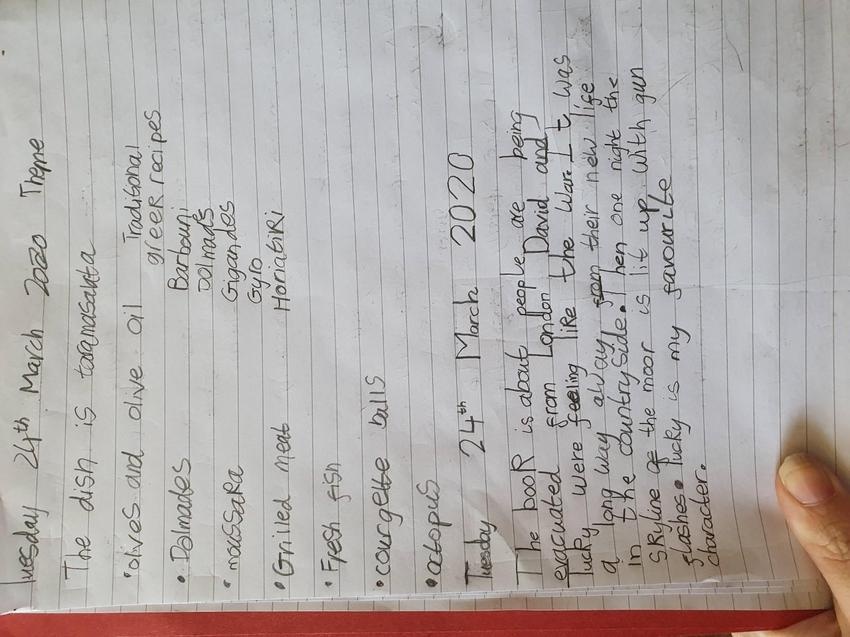 Tuesday 24th March 2020 Theme
The dish is taramasalata
• olives and olive oil
• Dolmades
• moussaka
• Grilled meat
• Fresh fish
• courgette balls
• octopus
Traditional
greek recipes
Barbouni
Dolmads
Gigandes
Gyro
Horiatiki
Tuesday 24th March 2020
The book is about people are being
evacuated from London David and
lucky were feeling like the War. It was
a long way away from their new life
in the countryside. Then one night the
skyline of the moor is lit up with gun
flashes. lucky is my favourite
character.